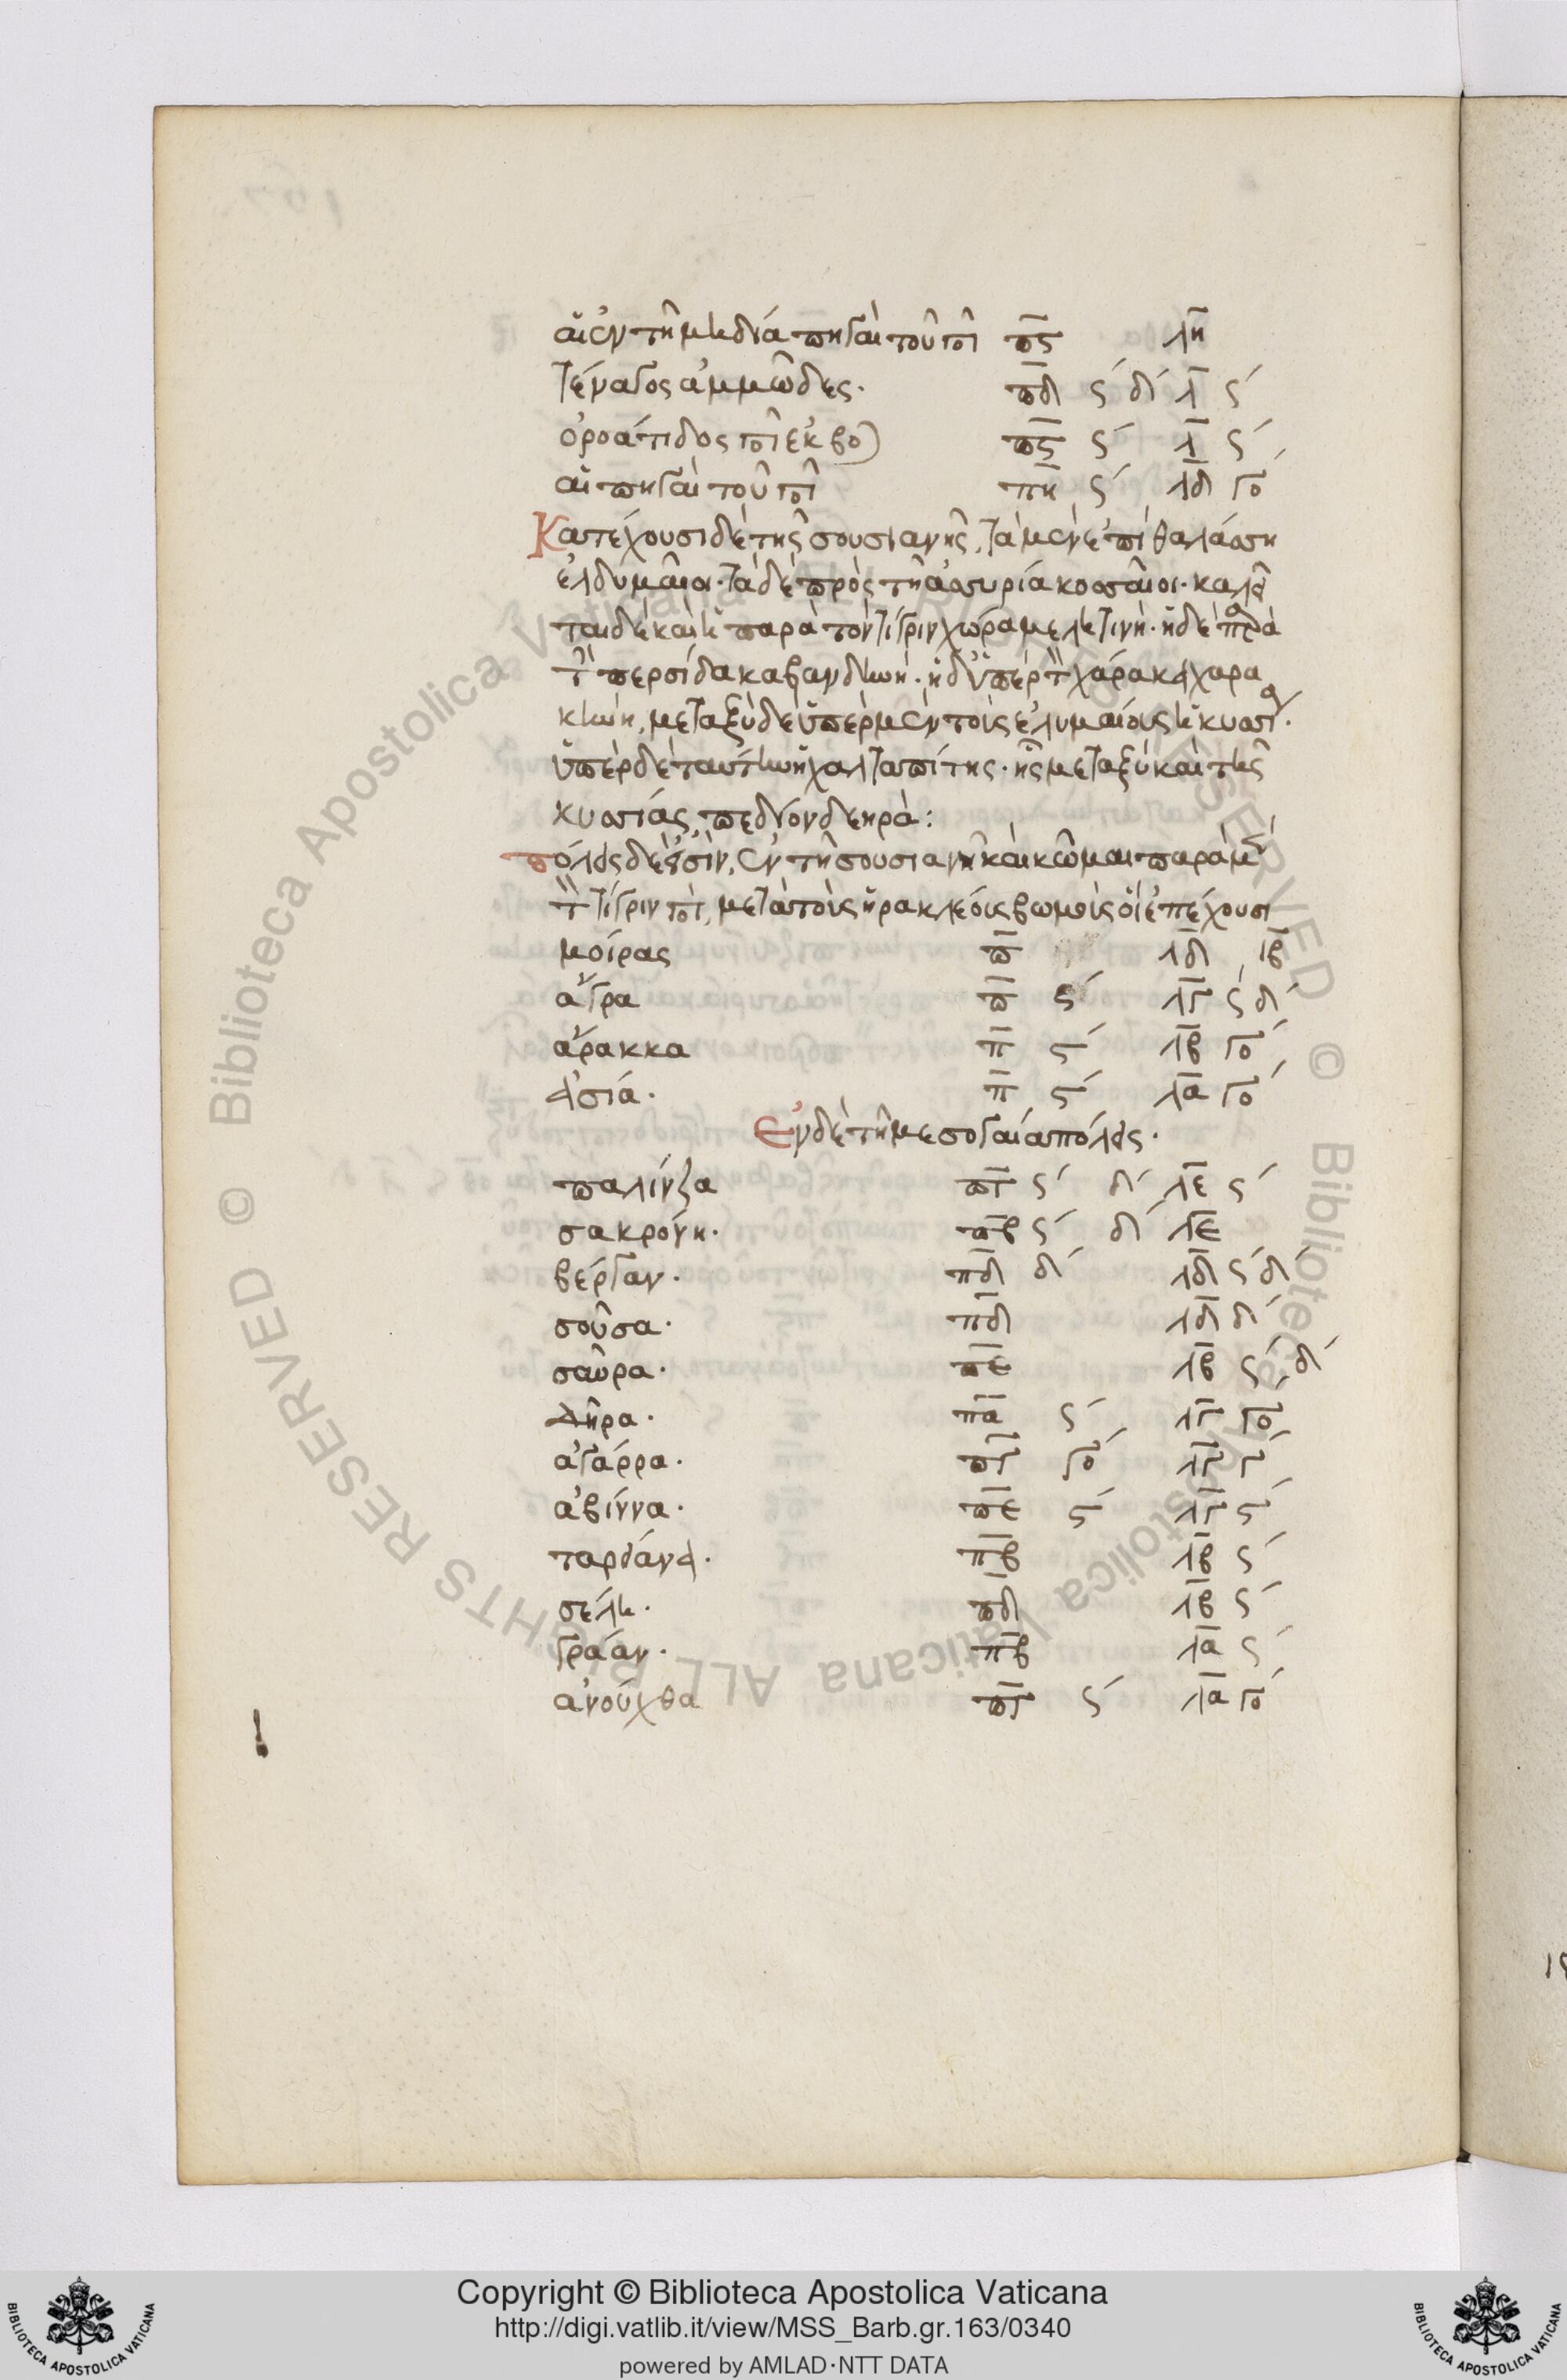 αἱ ἐν τῆ μηδία πηγαὶ τοῦ πο π̅ϛ̅ λ̅η̅
τέναγος ἀμμῶδες· π̅δ̅ ϛʹ δʹ λ̅ ϛʹ
ὀροάτιδος πο ἐκβο π̅ϛ̅ ϛʹ λ̅ ϛʹ
αἱ πηγαὶ τοῦ πο π̅η̅ ϛʹ λ̅δ̅ γο
Κατέχουσι δὲ τῆς σουσιανῆς, τὰ μὲν ἐπὶ θαλάσση
ἐλδυμαῖοι· τὰ δὲ πρὸς τῆ ἀσσυρία κοσσαῖοι· καλεῖ
ται δὲ καὶ ἡ παρὰ τὸν τίγριν χώρα μελητινή· ἡ δὲ παρὰ
τὴν περσίδα καβανδηνή· ἡ δ' ὑπὲρ τὴν χάρακα χαρα
κηνή, μεταξὺ δὲ ὑπὲρ μὲν τοὺς ἐλυμαίους ἡ κυσσία·
ὑπὲρ δὲ ταύτην ἡ χαλταπίτης· ἧς μεταξὺ καὶ τῆς
κυσσίας, πεδίον δεηρὰ:
πόλεις δέ εἰσιν, ἐν τῆ σουσιανῆ καὶ κῶμαι παρὰ μὲν
τὸν τίγριν πο, μετὰ τοὺς ἡρακλέους βωμοὺς οἳ ἐπέχουσι
μοίρας π̅ λ̅δ̅ ιβ
ἄγρα π̅ ϛʹ λ̅γ̅ ϛʹ δʹ
ἄρακκα π̅ ϛʹ λ̅β̅ γο
ἀσιά· π̅ ϛʹ λ̅α̅ γο
Ἐν δὲ τῆ μεσογαία πόλεις·
παλίνζα π̅γ̅ ϛʹ δʹ λ̅ε̅ ϛʹ
σακρόνη· π̅β̅ ϛʹ δʹ λ̅ε̅
βέργαν· π̅δ̅ δʹ λ̅δ̅ ϛʹ δʹ
σοῦσα· π̅δ̅ λ̅δ̅ δʹ
σαῦρα· π̅ε̅ λ̅β̅ ϛʹ δʹ
δῆρα· π̅α̅ ϛʹ λ̅γ̅ γο
ἀγάρρα· π̅γ̅ γο λ̅γ̅ γʹ
ἀβίννα· π̅ε̅ ϛʹ λ̅γ̅ ϛʹ
ταρσάνα· π̅β̅ λ̅β̅ ϛʹ
σέλη· π̅δ̅ λ̅β̅ ϛʹ
γράαν· π̅β̅ λ̅α̅ ϛʹ
ἀνούχθα π̅γ̅ ϛʹ λ̅α̅ γο
Copyright © Biblioteca Apostolica Vaticana
http://digi.vatlib.it/view/MSS_Barb.gr.163/0340
powered by AMLAD·NTT DATA